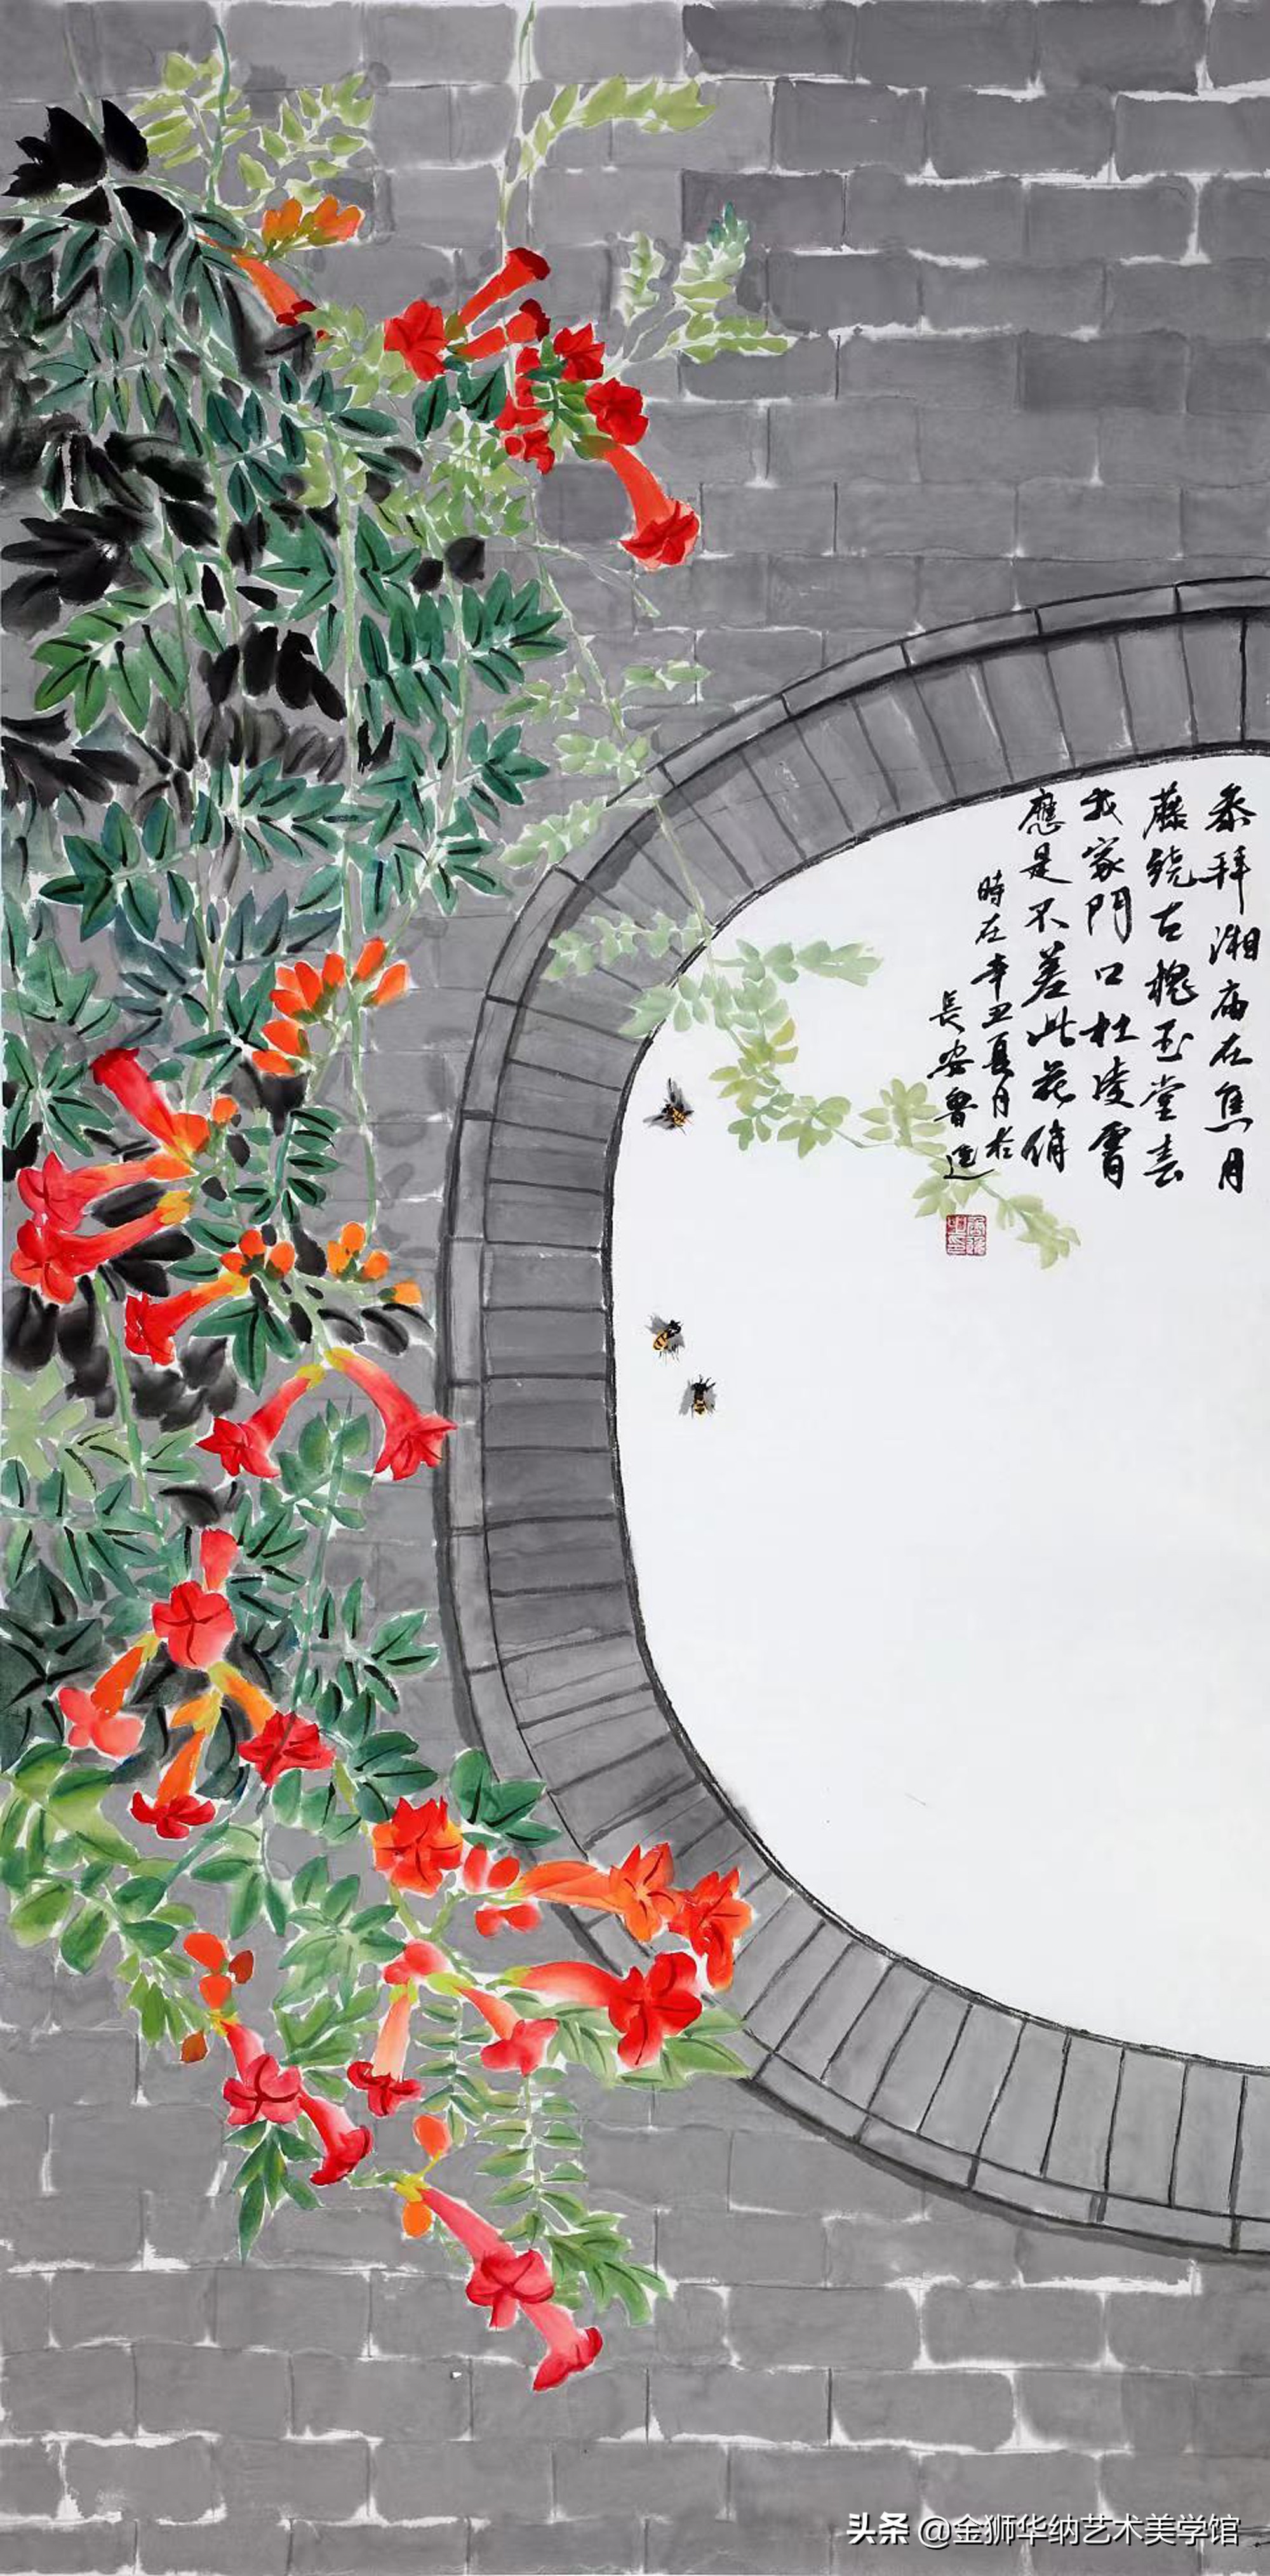 泰拜湘庙在焦月
藤绕古槐玉堂春
我家門口杜凌霄
應是不差此花俏
時在辛丑夏月於
長安魯迅
头条 @金狮华纳艺术美学馆